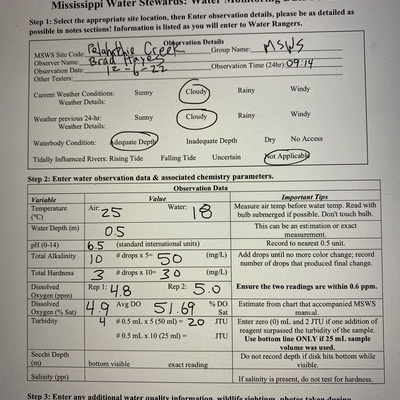 Mississippi Water Stewards: Water Monitoring Data
Step 1: Select the appropriate site location, then Enter observation details, please be as detailed as
possible in notes sections! Information is listed as you will enter to Water Rangers.
Observation Details
MSWS Site Code: Pelahatchie Creek Group Name: MSWS
Observer Name: Brad Hayes
Observation Date: 12-6-22 Observation Time (24hr): 09:14
Other Testers:
Current Weather Conditions: Sunny Cloudy Rainy Windy
Weather Details:
Weather previous 24-hr: Sunny Cloudy Rainy Windy
Weather Details:
Waterbody Condition: Adequate Depth Inadequate Depth Dry No Access
Tidally Influenced Rivers: Rising Tide Falling Tide Uncertain Not Applicable
Step 2: Enter water observation data & associated chemistry parameters.
Observation Data
Variable Value Important Tips
Temperature (°C) Air: 25 Water: 18 Measure air temp before water temp. Read with bulb submerged if possible. Don't touch bulb.
Water Depth (m) 0.5 This can be an estimation or exact measurement.
pH (0-14) 6.5 (standard international units) Record to nearest 0.5 unit.
Total Alkalinity 10 # drops x 5= 50 (mg/L) Add drops until no more color change; record
Total Hardness 3 # drops x 10= 30 (mg/L) number of drops that produced final change.
Dissolved Oxygen (ppm) Rep 1: 4.8 Rep 2: 5.0 Ensure the two readings are within 0.6 ppm.
Dissolved Oxygen (% Sat) 4.9 Avg DO 51.69 % DO Sat Estimate from chart that accompanied MSWS manual.
Turbidity 4 # 0.5 mL x 5 (50 ml) = 20 JTU Enter zero (0) mL and 2 JTU if one addition of reagent surpassed the turbidity of the sample.
# 0.5 mL x 10 (25 ml) = JTU Use bottom line ONLY if 25 mL sample volume was used.
Secchi Depth (m) bottom visible exact reading Do not record depth if disk hits bottom while visible.
Salinity (ppt) If salinity is present, do not test for hardness.
Step 3: Enter any additional water quality information, wildlife sightings, photos taken during